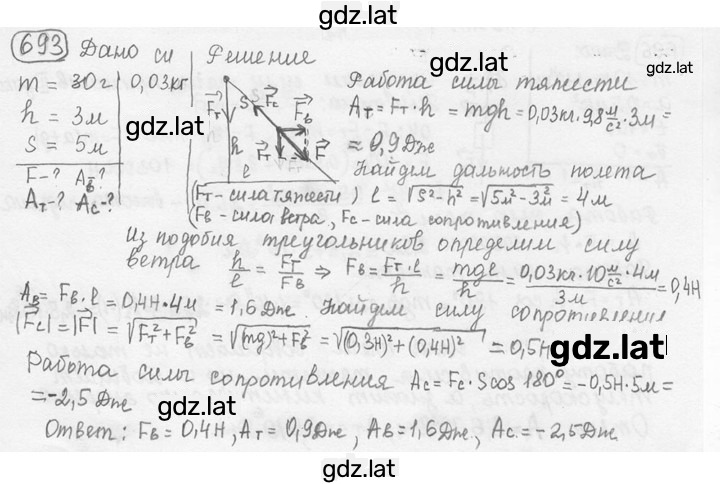 gdz.lat
693 Дано си Решение
m = 30 г 0,03кг
h = 3м
S = 5м
F-? Aв-?
Aт-? Ac-?
Fт h S Fc Fв Fт F l
Работа силы тяжести
Aт = Fт · h = mgh = 0,03кг · 9,8 м/с² · 3м =
= 0,9Дж Найдём дальность полета
(Fт - сила тяжести, l = √S²-h² = √5м²-3м² = 4м
(Fв - сила ветра, Fc - сила сопротивления)
Из подобия треугольников определим силу
ветра h/l = Fт/Fв ⇒ Fв = Fт·l/h = mgl/h = 0,03кг·10 м/с²·4м/3м = 0,4Н
Aв = Fв · l = 0,4Н · 4м = 1,6 Дж. Найдём силу сопротивления
|Fc| = |F| = √Fт²+Fв² = √(mg)²+Fв² = √(0,3Н)²+(0,4Н)² = 0,5Н
gdz.lat
Работа силы сопротивления Ac = Fc · S cos 180° = -0,5Н · 5м =
= -2,5 Дж
gdz.lat
Ответ: Fв = 0,4Н, Aт = 0,9Дж, Aв = 1,6Дж, Ac = -2,5Дж
gdz.lat